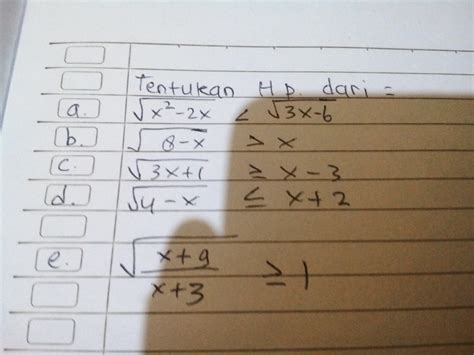 Tentukan Hp. dari =
a. √x²-2x < √3x-6
b. √8-x > x
c. √3x+1 ≥ x-3
d. √4-x ≤ x+2
e. √x+9/x+3 ≥ 1